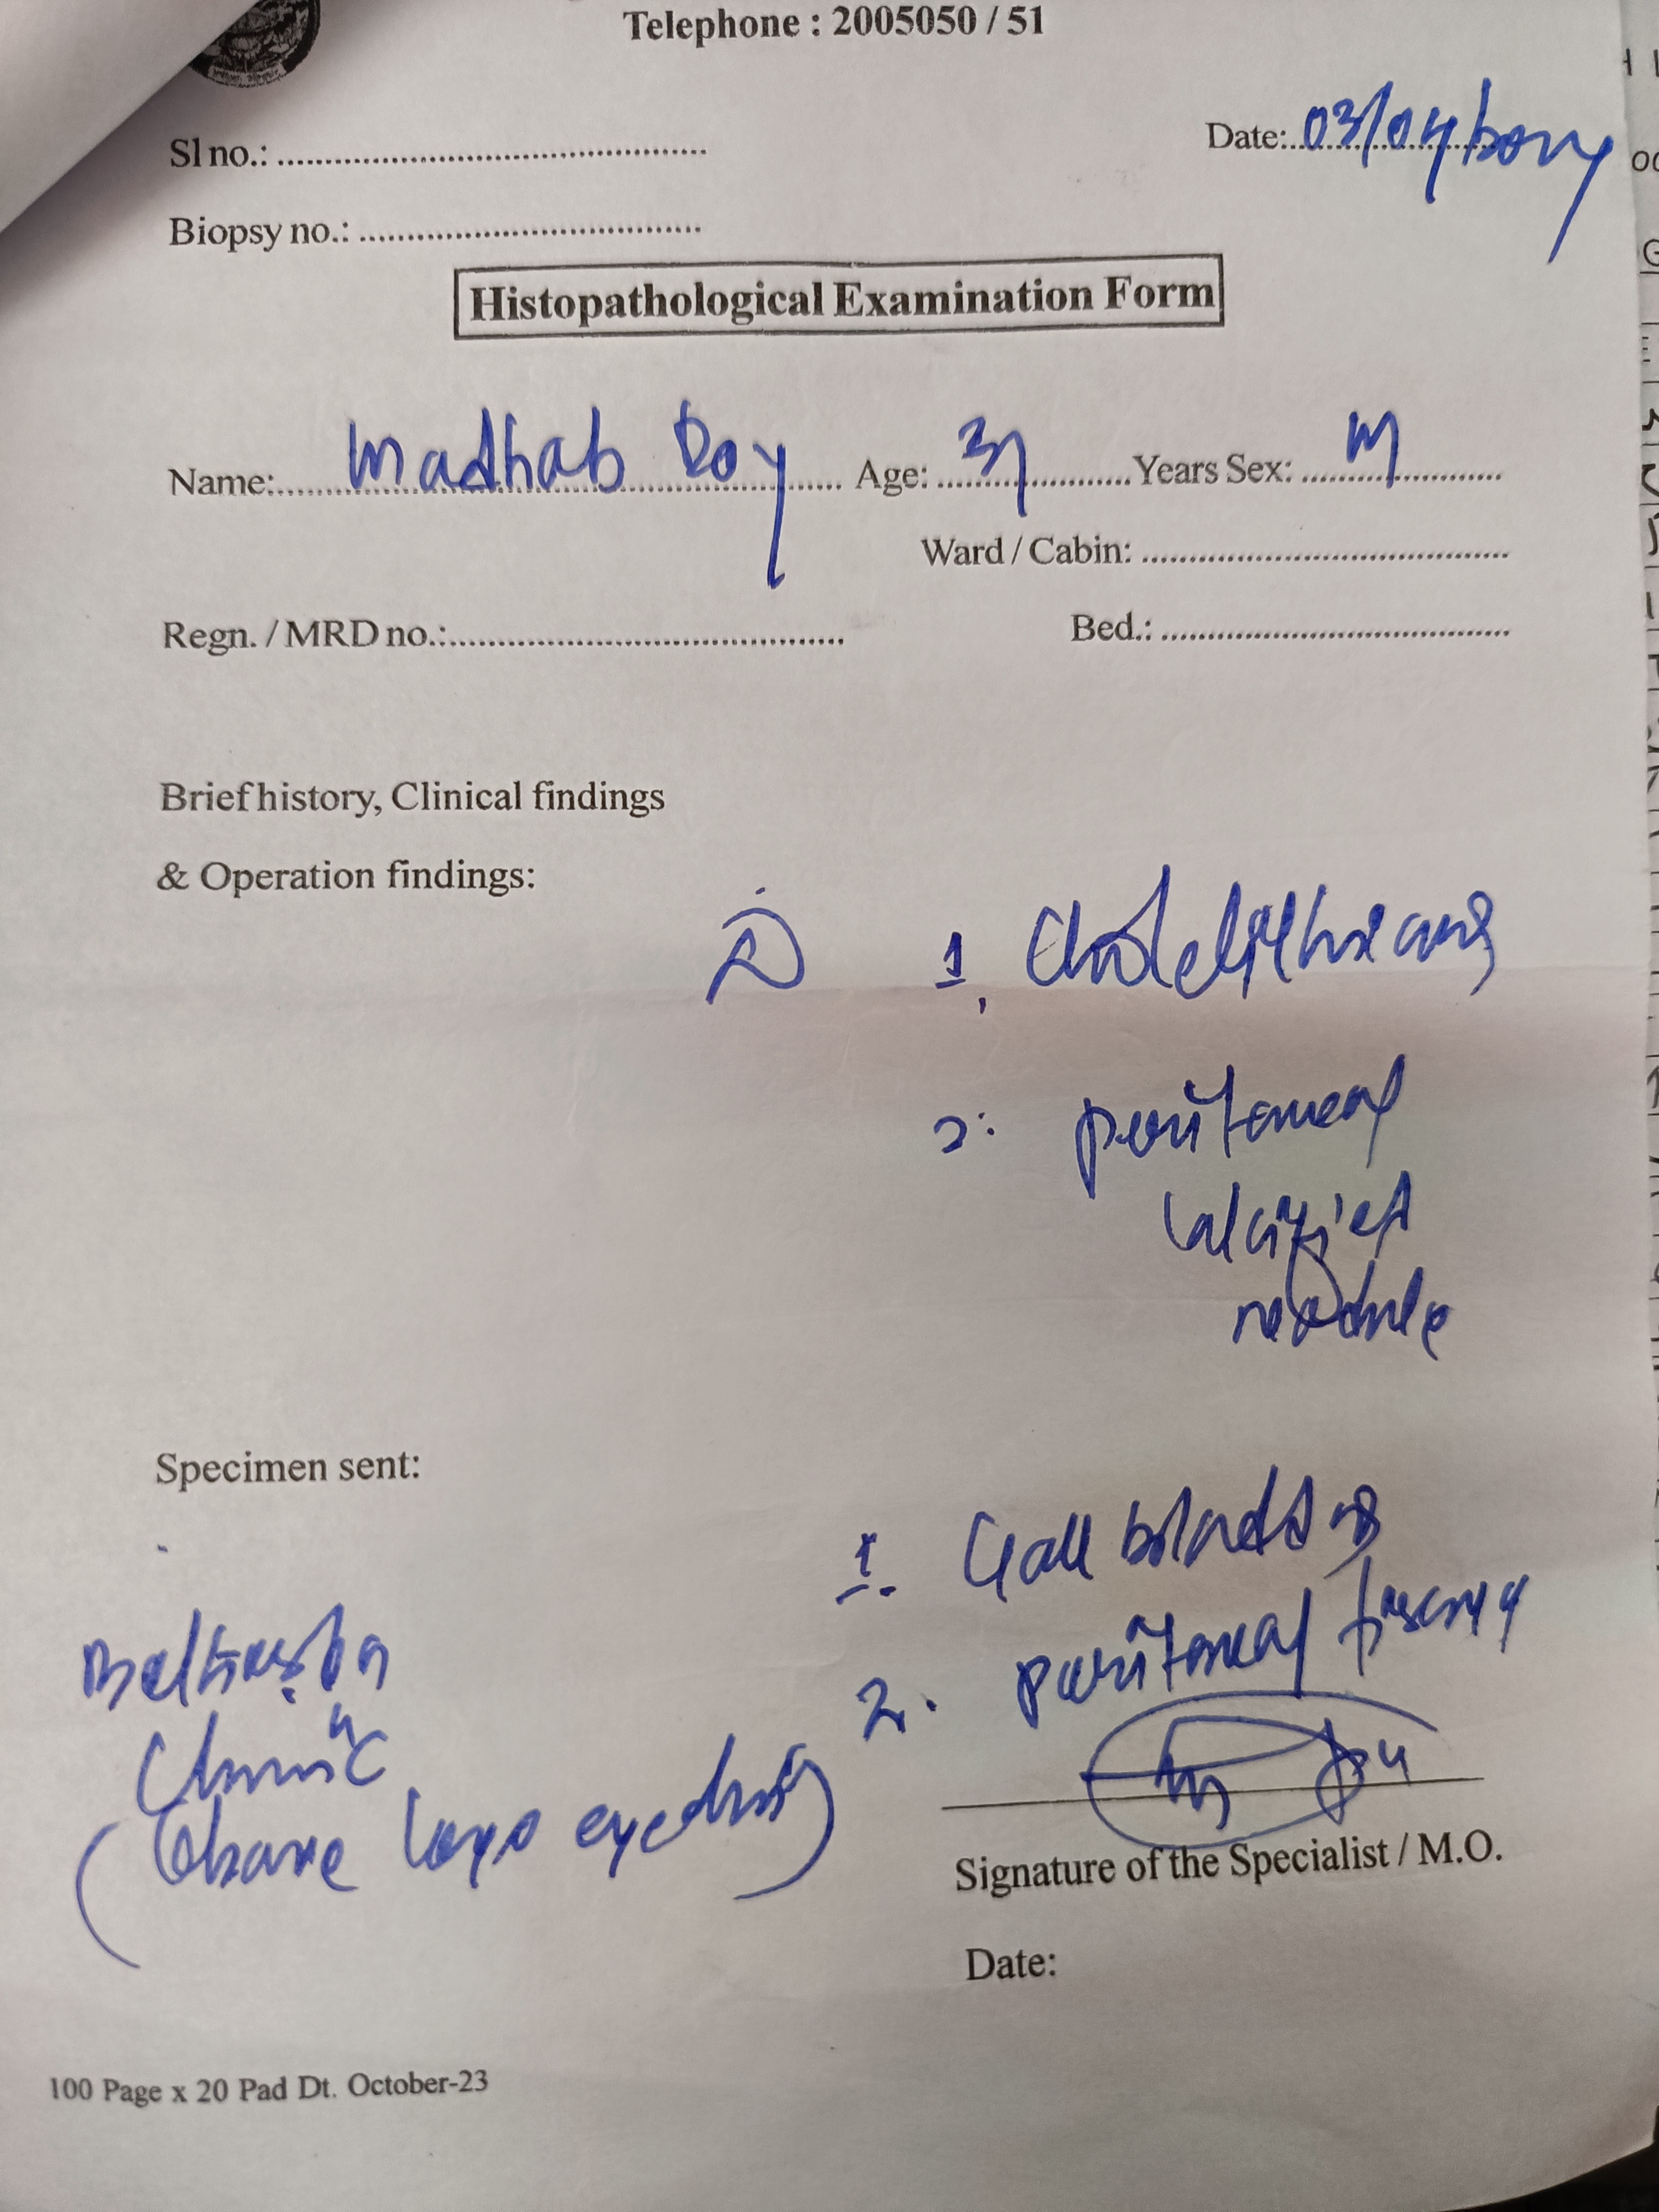 Telephone : 2005050 / 51
Sl no.:
Date: 03/04/
Biopsy no.:
Histopathological Examination Form
Name: Madhab Roy Age: 31 Years Sex: M
Ward / Cabin:
Regn. / MRD no.:
Bed.:
Brief history, Clinical findings
& Operation findings:
1. Cholelithiasis
2. peritoneal
calcified
nodule
Specimen sent:
1. Gall bladder
2. peritoneal
Clinic
Signature of the Specialist / M.O.
Date:
100 Page x 20 Pad Dt. October-23